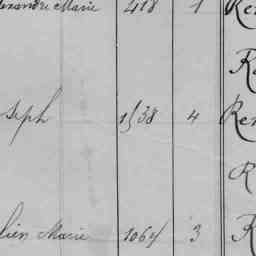 exandre Marie 418 1 Re
R
seph 1538 4 Ren
R
lien Marie 1064 3 R